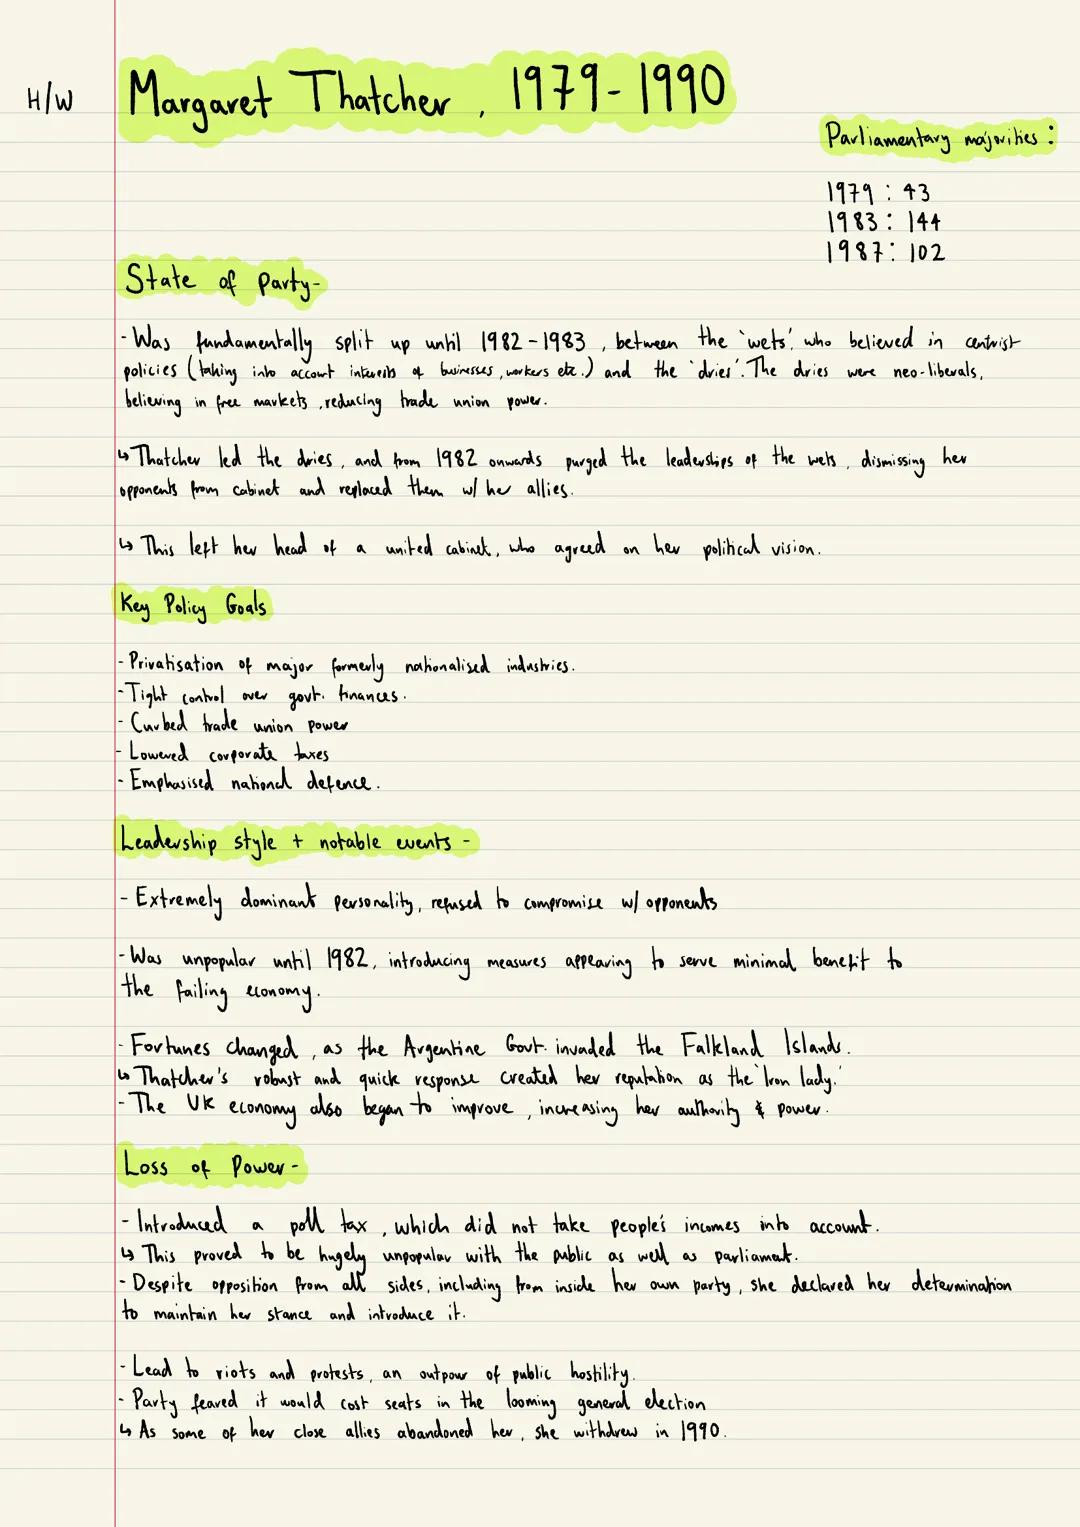 H/W
Margaret Thatcher, 1979-1990
Parliamentary majorities:
1979: 43
1983: 144
1987: 102
State of party-
- Was fundamentally split up until 1982-1983, between the 'wets', who believed in centrist
policies (taking into account interests of businesses, workers etc.) and the 'dries'. The dries were neo-liberals,
believing in free markets, reducing trade union power.
↳ Thatcher led the dries, and from 1982 onwards purged the leaderships of the wets, dismissing her
opponents from cabinet and replaced them w/ her allies.
↳ This left her head of a united cabinet, who agreed on her political vision.
Key Policy Goals
- Privatisation of major formerly nationalised industries.
- Tight control over govt. finances.
- Curbed trade union power
- Lowered corporate taxes
- Emphasised national defence.
Leadership style + notable events -
- Extremely dominant personality, refused to compromise w/ opponents
- Was unpopular until 1982, introducing measures appearing to serve minimal benefit to
the failing economy.
- Fortunes changed, as the Argentine Govt. invaded the Falkland Islands.
↳ Thatcher's robust and quick response created her reputation as the 'Iron lady.'
- The UK economy also began to improve, increasing her authority & power.
Loss of Power -
- Introduced a poll tax, which did not take people's incomes into account.
↳ This proved to be hugely unpopular with the public as well as parliament.
- Despite opposition from all sides, including from inside her own party, she declared her determination
to maintain her stance and introduce it.
- Lead to riots and protests, an outpour of public hostility.
- Party feared it would cost seats in the looming general election
↳ As some of her close allies abandoned her, she withdrew in 1990.